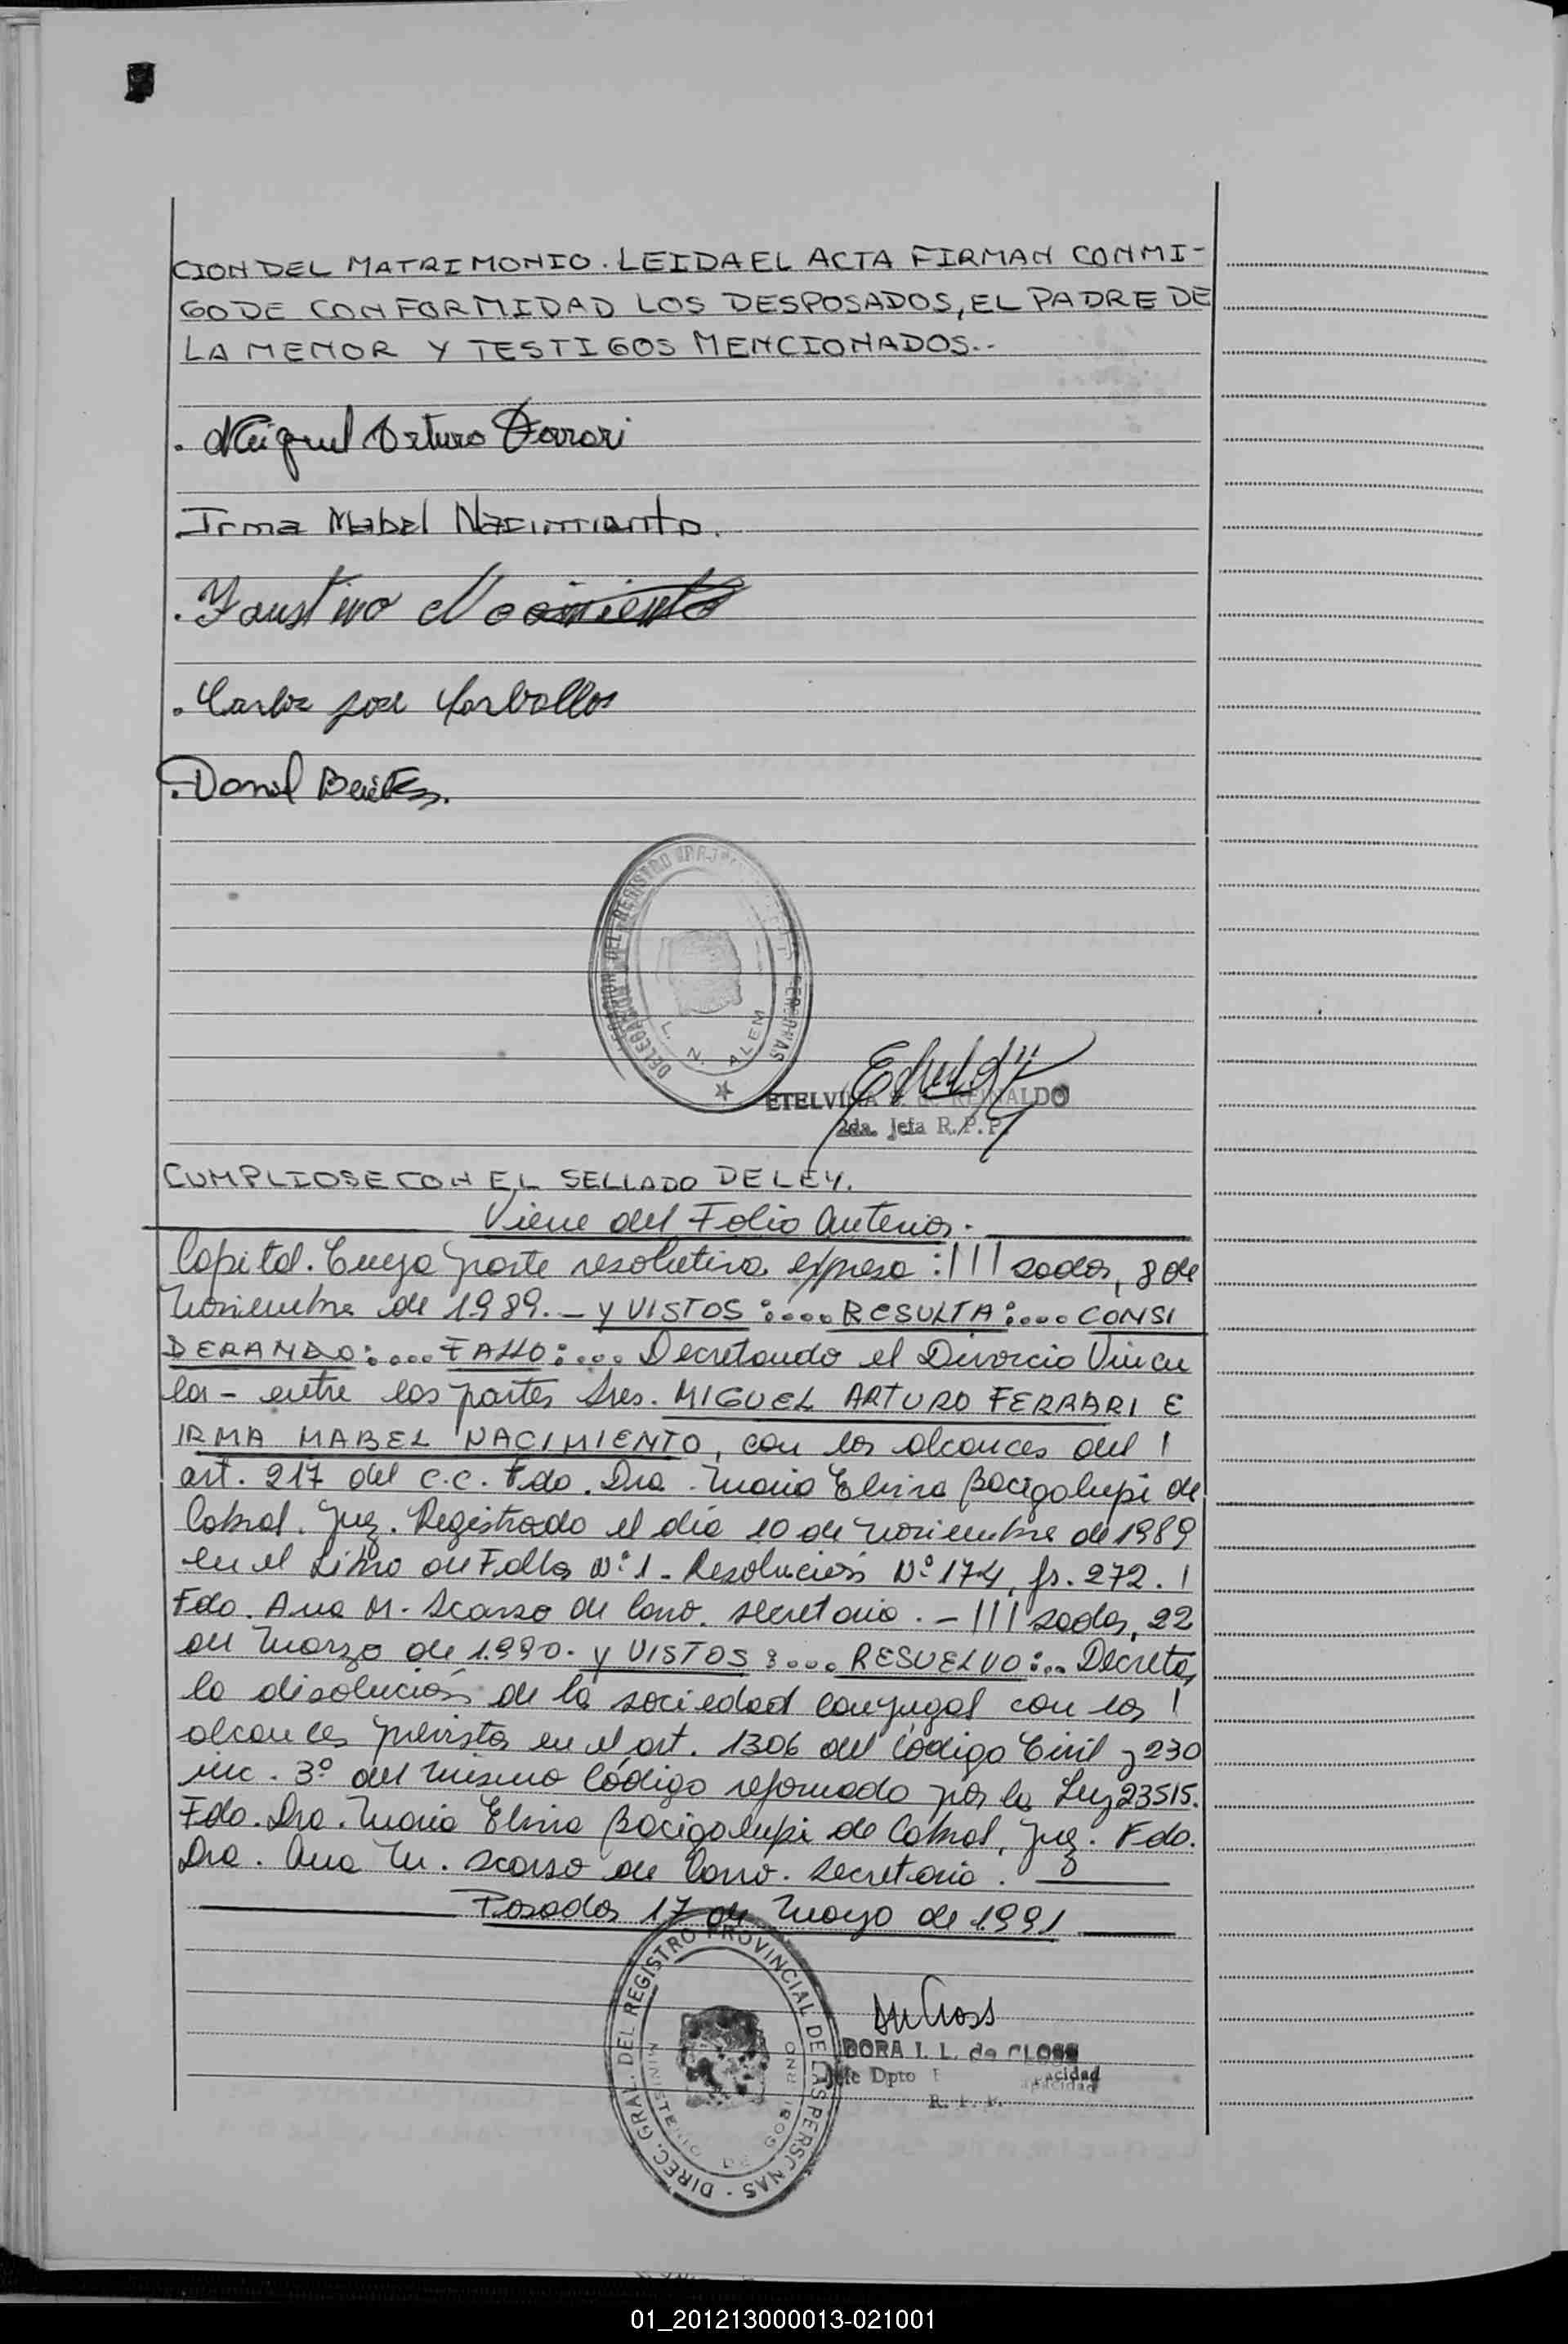 CION DEL MATRIMONIO. LEIDA EL ACTA FIRMAN CONMI-
GO DE CONFORMIDAD LOS DESPOSADOS, EL PADRE DE
LA MENOR Y TESTIGOS MENCIONADOS.-
Miguel Arturo Ferrari
Irma Mabel Nacimiento.
Faustino Nacimiento
Carlos José Carballos
Daniel Beitez.
DELEGACION DEL REGISTRO PERSONAS
L. N. ALEM
ETELVINA REINALDO
2da. Jefa R.P.P.
CUMPLIOSE CON EL SELLADO DE LEY.
Viene del Folio Anterior.
Capital. Cuya parte resolutiva expresa: ///sadas, 8 de
Noviembre de 1989.- Y VISTOS:.... RESULTA:.... CONSI
DERANDO:.... FALLO:.... Decretando el Divorcio Vincu
lar- entre las partes Sres. MIGUEL ARTURO FERRARI E
IRMA MABEL NACIMIENTO, con los alcances del /
art. 217 del C.C. Fdo. Dra. María Elvira Bacigalupi de
Cabral. Juez. Registrado el día 10 de Noviembre de 1989
en el Libro de Fallos Nº 1- Resolución Nº 174, fs. 272. /
Fdo. Ana M. Scarso de Carro. Secretaria.- ///sadas, 22
de Marzo de 1.990. Y VISTOS:.... RESUELVO:... Decretar
la disolución de la sociedad conyugal con los /
alcances previstos en el art. 1306 del Código Civil y 230
inc. 3º del mismo Código reformado por la Ley 23515.
Fdo. Dra. María Elvira Bacigalupi de Cabral, Juez. Fdo.
Dra. Ana M. Scarso de Carro. Secretaria.
Posadas 17 de Mayo de 1.991
DIREC. GRAL. DEL REGISTRO PROVINCIAL DE LAS PERSONAS
MINISTERIO DE GOBIERNO
DORA I. L. de CLOSS
Jefe Dpto acidad
R. P. P.
01_201213000013-021001